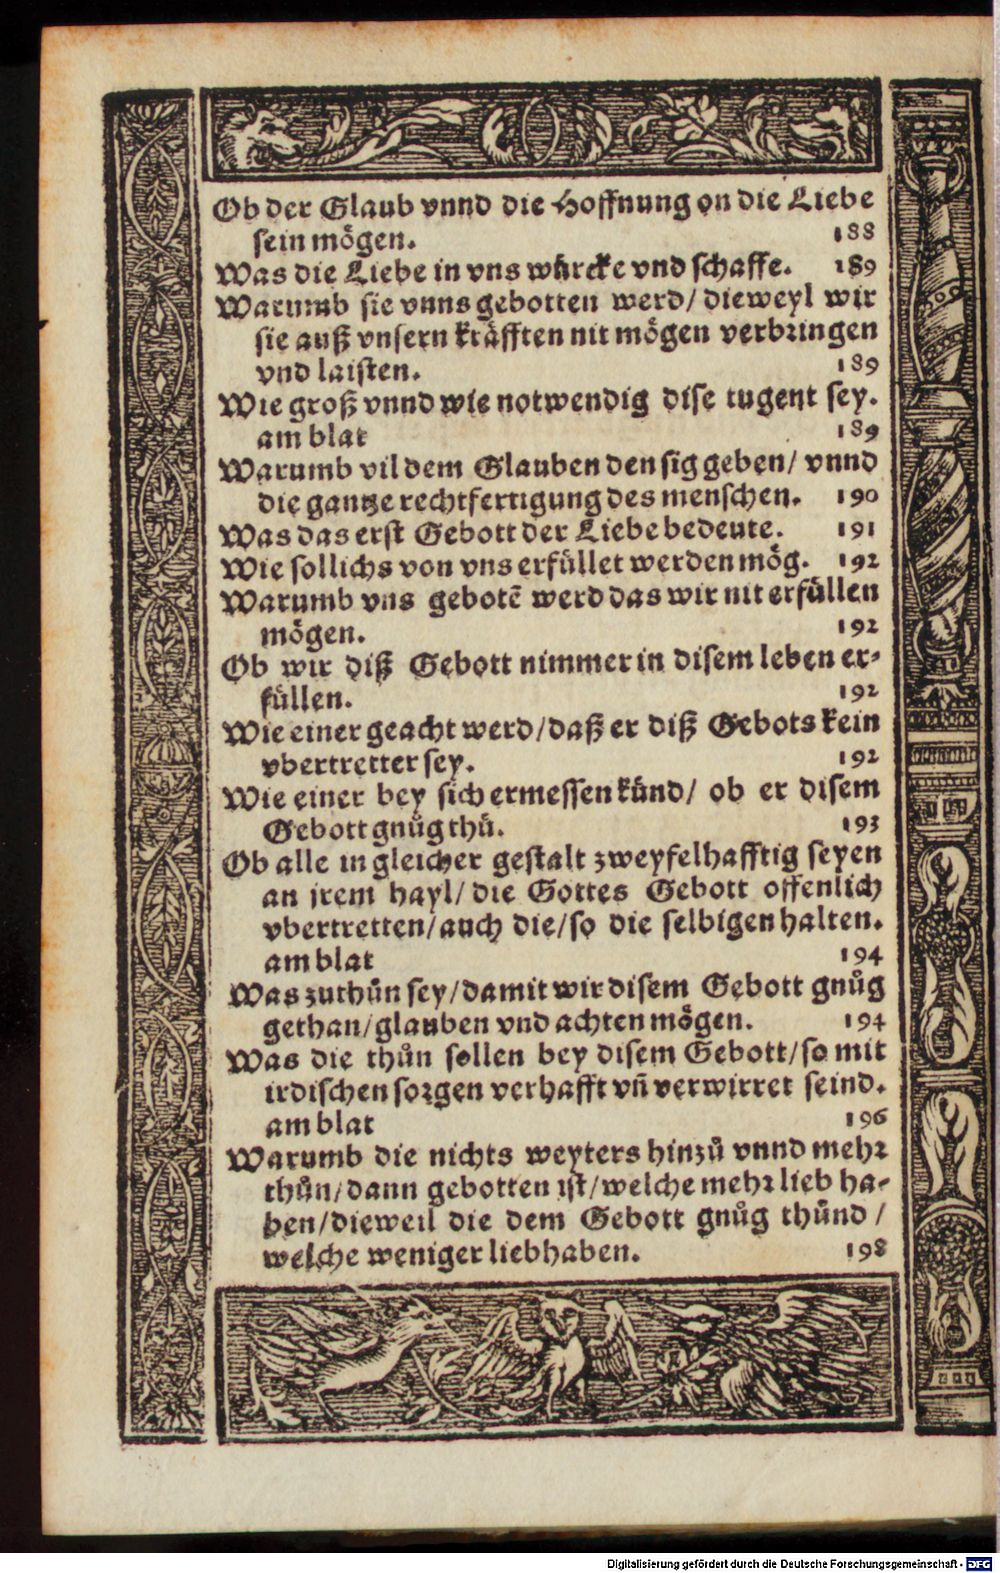 Ob der Glaub vnnd die Hoffnung on die Liebe
sein mögen. 188
Was die Liebe in vns würcke vnd schaffe. 189
Warumb sie vnns gebotten werd/ dieweyl wir
sie auß vnsern kräfften nit mögen verbringen
vnd laisten. 189
Wie groß vnnd wie notwendig dise tugent sey.
am blat 189
Warumb vil dem Glauben den sig geben/ vnnd
die gantze rechtfertigung des menschen. 190
Was das erst Gebott der Liebe bedeute. 191
Wie sollichs von vns erfüllet werden mög. 192
Warumb vns gebotē werd das wir nit erfüllen
mögen. 192
Ob wir diß Gebott nimmer in disem leben er-
füllen. 192
Wie einer geacht werd/daß er diß Gebots kein
vbertretter sey. 192
Wie einer bey sich ermessen künd/ ob er disem
Gebott gnůg thů. 193
Ob alle in gleicher gestalt zweyfelhafftig seyen
an jrem hayl/ die Gottes Gebott offenlich
vbertretten/auch die/so die selbigen halten.
am blat 194
Was zuthůn sey/damit wir disem Gebott gnůg
gethan/glauben vnd achten mögen. 194
Was die thůn sollen bey disem Gebott/so mit
irdischen sorgen verhafft vn̄ verwirret seind.
am blat 196
Warumb die nichts weyters hinzů vnnd mehr
thůn/dann gebotten ist/welche mehr lieb ha-
ben/dieweil die dem Gebott gnůg thůnd /
welche weniger liebhaben. 198
Digitalisierung gefördert durch die Deutsche Forschungsgemeinschaft - DFG